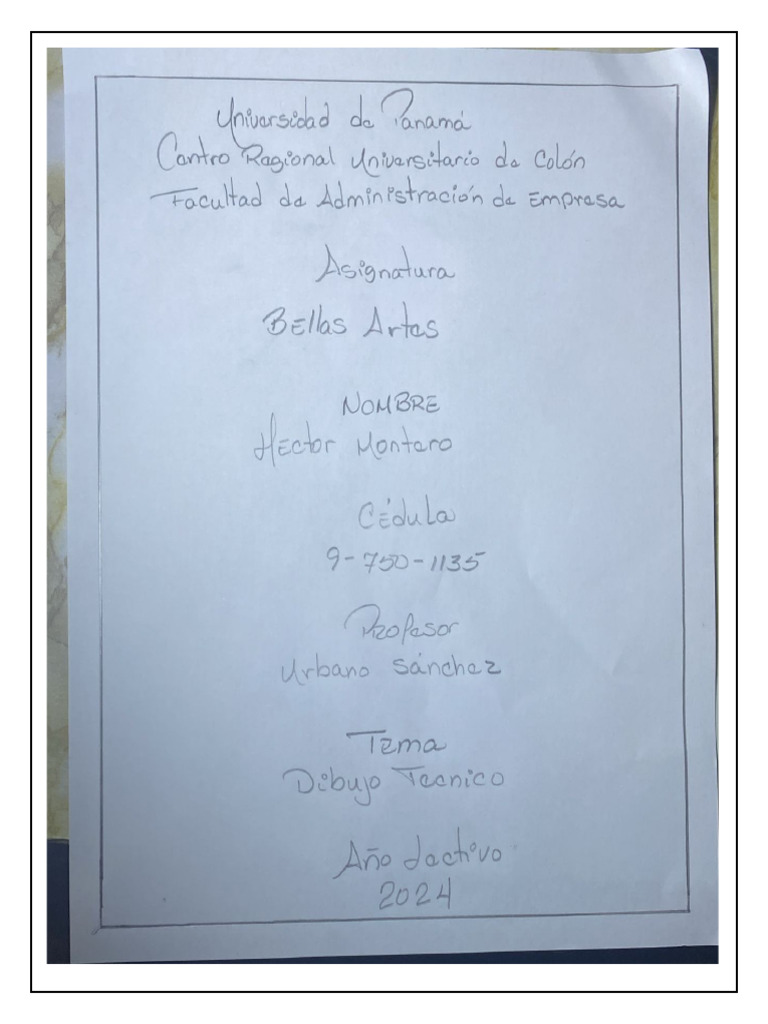 Universidad de Panamá
Centro Regional Universitario de Colón
Facultad de Administración de Empresa
Asignatura
Bellas Artes
NOMBRE
Hector Montero
Cédula
9-750-1135
Profesor
Urbano Sánchez
Tema
Dibujo Tecnico
Año Lectivo
2024